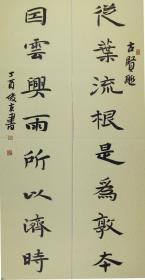 古賢聯
從葉流根是爲敦本
囙雲興雨所以濟時
丁酉
書